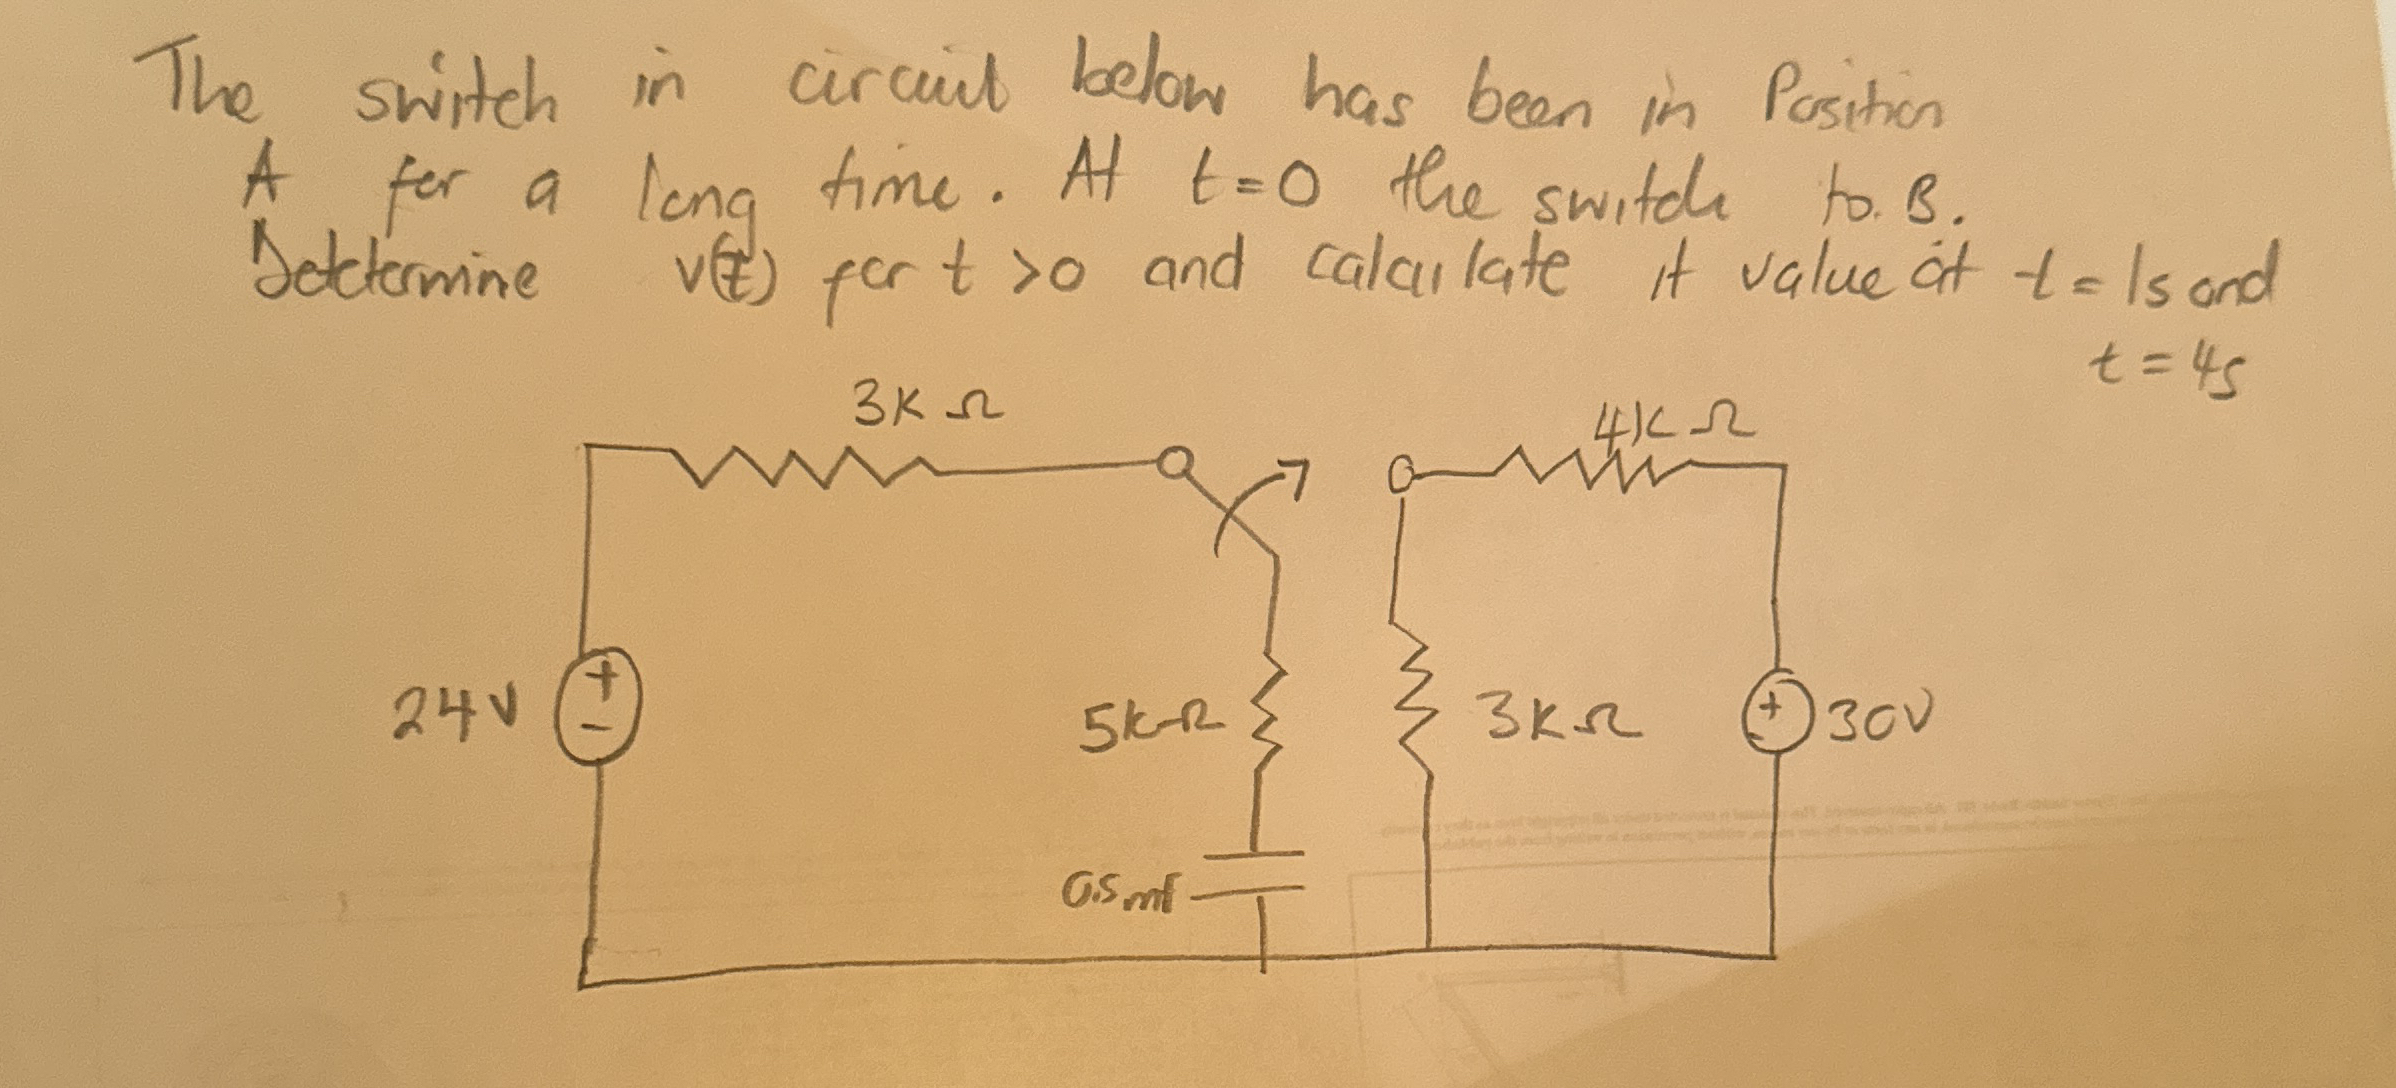 The switch in circuit below has been in Position
A for a long time. At t=0 the switch to B.
Detetermine v(t) for t >0 and calculate it value at t = 1s and
t = 4s
3K Ω
4K Ω
24V
+
−
5kΩ
3KΩ
+
-
30V
0.5mf